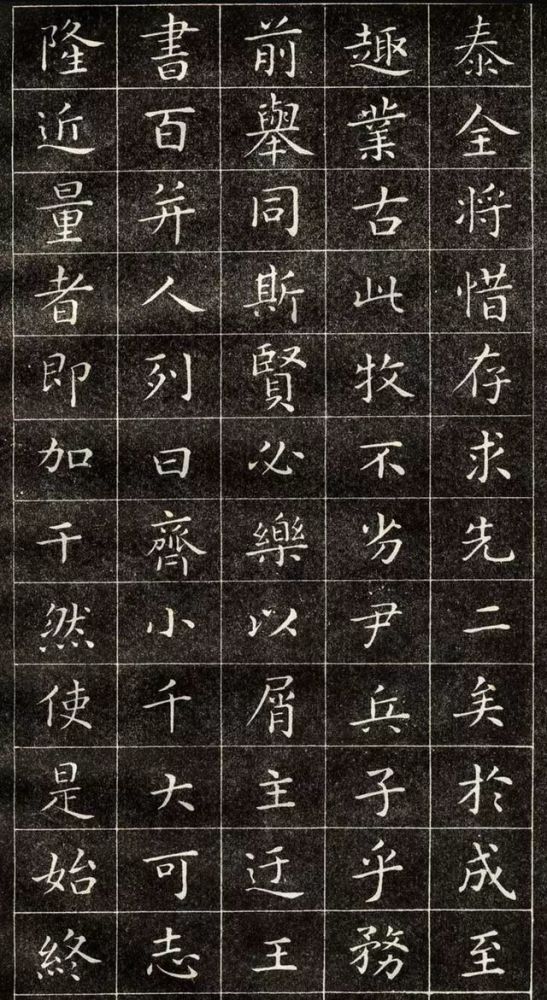 泰全将惜存求先二矣於成至
趣業古此牧不劣尹兵子乎務
前舉同斯賢必樂以屑主迁王
書百并人列曰齊小千大可志
隆近量者即加干然使是始終